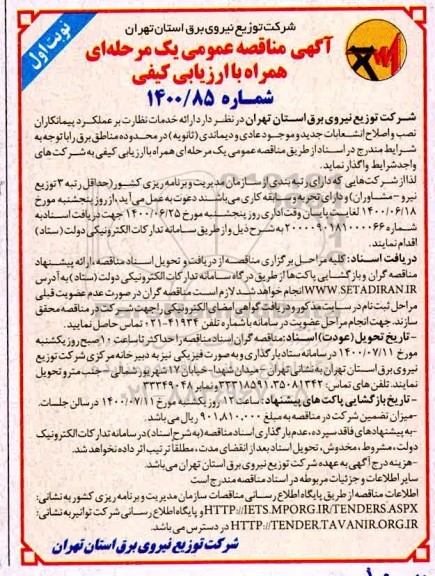 شرکت توزیع نیروی برق استان تهران
نوبت اول
آگهی مناقصه عمومی یک مرحله‌ای
همراه با ارزیابی کیفی
شماره ۱۴۰۰/۸۵
شرکت توزیع نیروی برق استان تهران در نظر دارد ارائه خدمات نظارت بر عملکرد پیمانکاران
نصب و اصلاح انشعابات جدید و موجود عادی و دیماندی (ثانویه) در محدوده مناطق برق را با توجه به
شرایط مندرج در اسناد از طریق مناقصه عمومی یک مرحله‌ای همراه با ارزیابی کیفی به شرکت های
واجد شرایط واگذار نماید.
لذا از شرکت‌هایی که دارای رتبه بندی از سازمان مدیریت و برنامه ریزی کشور (حداقل رتبه ۳ توزیع
نیرو - مشاوران) و دارای تجربه و سابقه کاری می‌باشند دعوت به عمل می آید، از روز پنجشنبه مورخ
۱۴۰۰/۰۶/۱۸ لغایت پایان وقت اداری روز پنجشنبه مورخ ۱۴۰۰/۰۶/۲۵ جهت دریافت اسناد به
شماره ۲۰۰۰۰۹۰۱۸۱۰۰۰۰۶۶ به شرح ذیل و از طریق سامانه تدارکات الکترونیکی دولت (ستاد)
اقدام نمایند.
دریافت اسناد: کلیه مراحل برگزاری مناقصه از دریافت و تحویل اسناد مناقصه، ارائه پیشنهاد
مناقصه گران و بازگشایی پاکت‌ها از طریق درگاه سامانه تدارکات الکترونیکی دولت (ستاد) به آدرس
WWW.SETADIRAN.IR انجام خواهد شد. لازم است مناقصه گران در صورت عدم عضویت قبلی
مراحل ثبت نام در سایت مذکور و دریافت گواهی امضای الکترونیکی را جهت شرکت در مناقصه محقق
سازند. جهت انجام مراحل عضویت در سامانه با شماره تلفن ۴۱۹۳۴-۰۲۱ تماس حاصل نمایید.
- تاریخ تحویل (عودت) اسناد: مناقصه گران اسناد مناقصه را حداکثر تا ساعت ۱۰ صبح روز یکشنبه
مورخ ۱۴۰۰/۰۷/۱۱ در سامانه ستاد بارگذاری و به صورت فیزیکی نیز به دبیرخانه مرکزی شرکت توزیع
نیروی برق استان تهران به نشانی تهران - میدان شهدا - خیابان ۱۷ شهریور شمالی - جنب مترو تحویل
نمایند. تلفن های تماس: ۳۵۰۸۱۳۴۲، ۳۳۳۱۸۵۹۱ و نمابر ۳۳۳۴۹۰۴۸
- تاریخ بازگشایی پاکت های پیشنهاد: ساعت ۱۲ روز یکشنبه مورخ ۱۴۰۰/۰۷/۱۱ در سالن جلسات.
- میزان تضمین شرکت در مناقصه به مبلغ ۹۰۱،۸۱۰،۰۰۰ ریال می باشد.
- به پیشنهادهای فاقد سپرده، عدم بارگذاری اسناد مناقصه (به شرح اسناد) در سامانه تدارکات الکترونیک
دولت، مشروط، مخدوش، تحویل اسناد بعد از انقضای مدت، مطلقا ترتیب اثر داده نخواهد شد.
- هزینه درج آگهی به عهده شرکت توزیع نیروی برق استان تهران می باشد.
سایر اطلاعات و جزئیات مربوطه در اسناد مناقصه مندرج است
اطلاعات مناقصه از طریق پایگاه اطلاع رسانی مناقصات سازمان مدیریت و برنامه ریزی کشور به نشانی:
HTTP://IETS.MPORG.IR/TENDERS.ASPX و پایگاه اطلاع رسانی شرکت توانیر به نشانی:
HTTP://TENDER.TAVANIR.ORG.IR در دسترس می باشد.
شرکت توزیع نیروی برق استان تهران